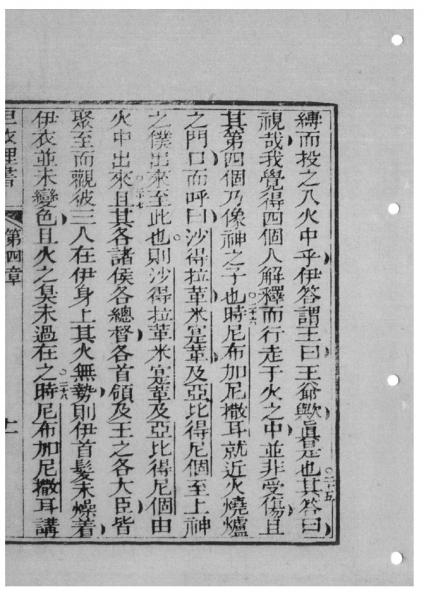 縛而投之入火中乎伊答謂王曰王爺歟眞是也○二十五其答曰
視哉我覺得四個人解釋而行走于火之中並非受傷且
其第四個乃像神之子也○二十六時尼布加尼撒耳就近火燒爐
之門口而呼曰沙得拉革米寔革及亞比得尼個至上神
之僕出來至此也則沙得拉革米寔革及亞比得尼個由
火中出來○二十七且其各諸侯各總督各首領及王之各大臣皆
聚至而觀彼三人在伊身上其火無勢則伊首髮未燥着
伊衣並未變色且火之臭未過在之○二十八時尼布加尼撒耳講
第四章